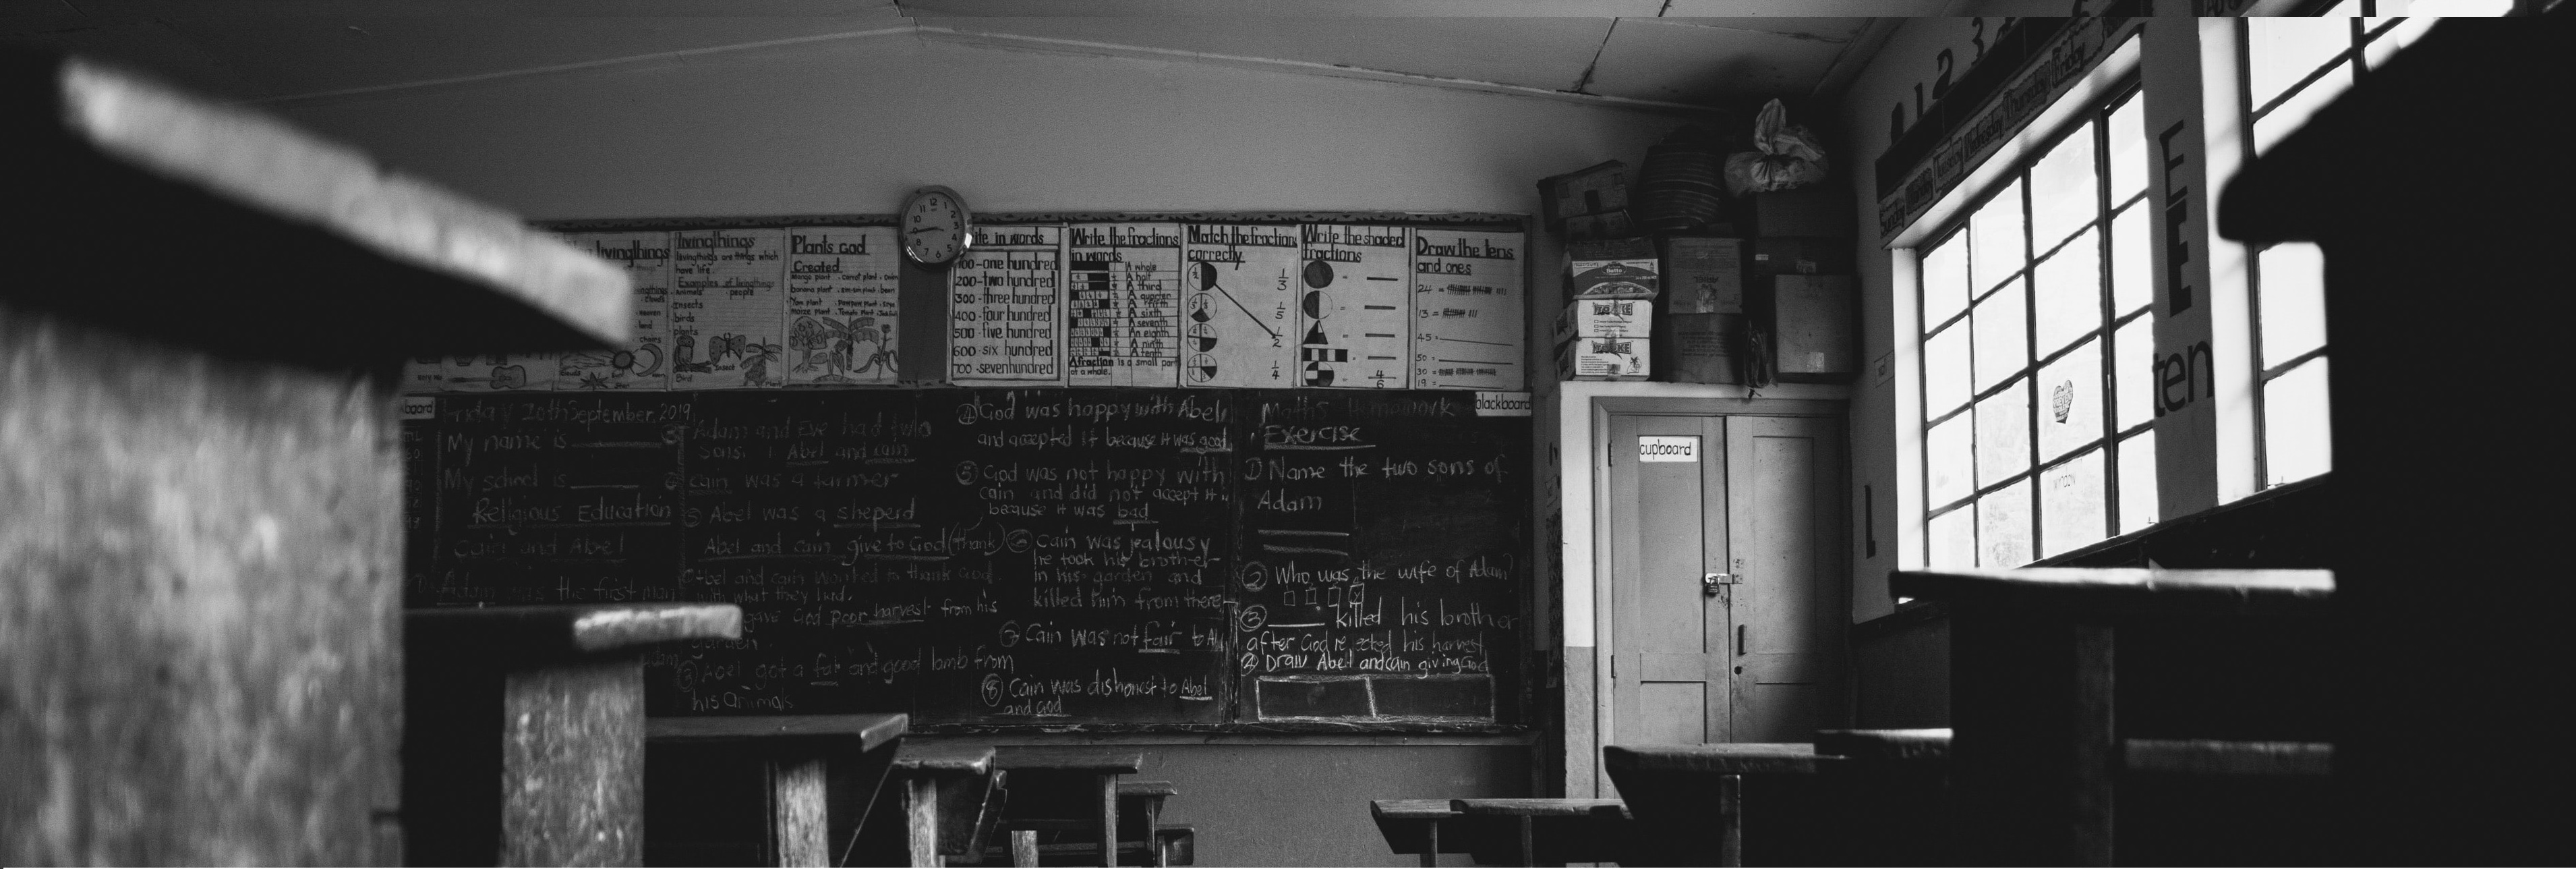 livingthings
livingthings
livingthings are things which
have life.
Examples of livingthings
animals people
insects
birds
plants
Bird
Insect
Plant
Star
Plants God
Created
Mango plant . Carrot plant .
banana plant .
Yam plant . Pawpaw plant .
maize plant . Tomato Plant
12
1
2
3
4
5
6
7
8
9
10
11
in words
100-one hundred
200-two hundred
300-three hundred
400-four hundred
500-five hundred
600-six hundred
700-sevenhundred
Write the fractions
in words
A whole
A half
A third
A quarter
A sixth
A seventh
An eighth
A ninth
A tenth
A fraction is a small part
of a whole.
Match the fractions
correctly
1/2
1/3
1/5
1/2
1/4
Write the shaded
fractions
=
=
=
=
= 4/6
Draw the tens
and ones
24 =
13 =
45 =
50 =
30 =
19 =
board
blackboard
Friday 20th September. 2019
My name is
My school is
Religious Education
Cain and Abel
Adam was the first man
Adam and Eve had two
sons. 1 Abel and cain
cain was a farmer
Abel was a sheperd
Abel and cain give to God (thank)
Abel and cain wanted to thank God
with what they had.
gave God poor harvest from his
garden
Abel got a fat and good lamb from
his animals
④ God was happy with Abel
and accepted it because it was good
⑤ God was not happy with
cain and did not accept it
because it was bad
⑥ Cain was jealousy
he took his brother
in his garden and
killed him from there
Cain was not fair to
⑧ Cain was dishonest to Abel
and God
Maths Homework
Exercise
① Name the two sons of
Adam
② Who was the wife of Adam?
③ killed his brother
after God rejected his harvest
④ Draw Abel and cain giving God
cupboard
1 2 3
Sunday
Monday
Tuesday
Wednesday
Thursday
Friday
ten